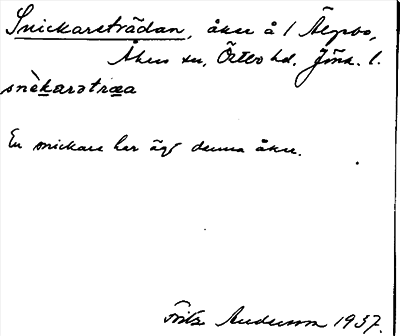 Snickareträdan, åker å 1 Älgbo,
Åkers sn, Östbo hd, Jönk. l.
snèkarətræa
En snickare har ägt denna åker.
Fritz Andersson 1937.